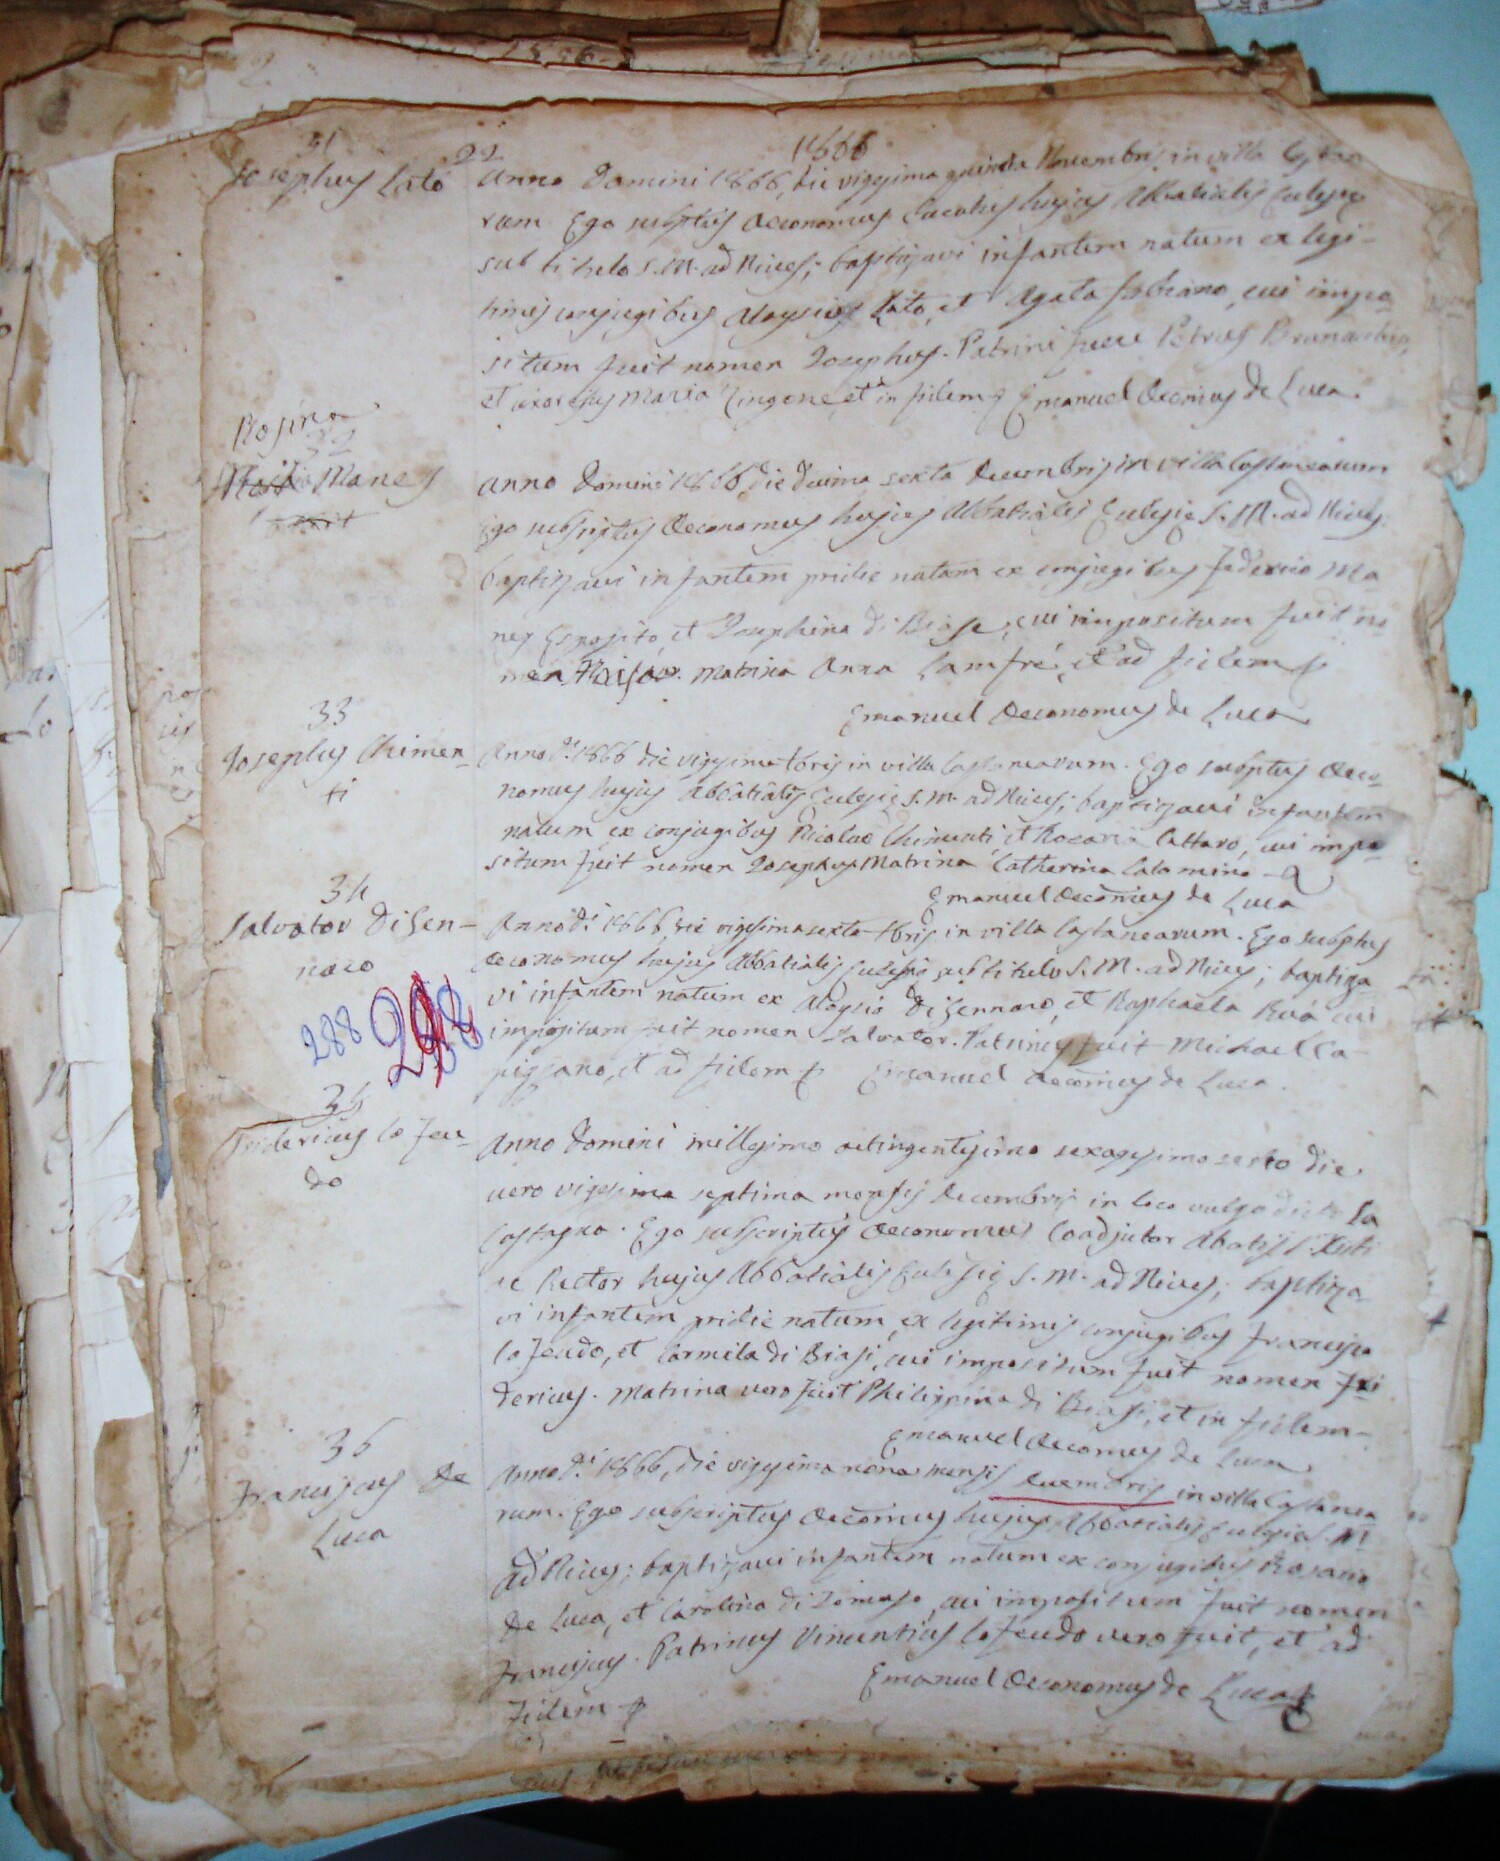 22
1866
31
Josephus Lato
Anno Domini 1866, die vigesima quinta Novembris in villa
rum Ego subptus Oeconomus Curatus hujus Abbatialis Eclesie
sub titulo S. M. ad Nives; baptizavi infantem natum ex legi-
timis conjugibus Aloysius Lato, et Agata Fabiano, cui impo
situm fuit nomen Josephus. Patrini fuere Petrus
et uxor ejus Maria Cingone, et in fidem Emanuel Oecomus de Luca
Rosina
32
Manes
Anno Domini 1866, die decima sexta decembris in villa Castanearum
Ego subscriptus Oeconomus hujus Abbatialis Eclesie S. M. ad Nives.
baptizavi infantem pridie natam ex conjugibus Federico Ma
nes Esposito, et Josephina di Biase, cui impositum fuit no
men Matrina Anna Lamfré, et ad fidem
Emanuel Oeconomus de Luca
33
Josephus Chimen-
ti
Anno Di 1866 die vigesima 10bris in villa Castanearum. Ego subptus Oeco-
nomus hujus Abbatialis Eclesie S. M. ad Nives; baptizavi infantem
natum ex conjugibus Nicolao Chimenti, et Rosaria Cattaro, cui impo
situm fuit nomen Josephus Matrina Catherina Calomino
Emanuel Oecomus de Luca
34
Salvator Di Gen-
naro
288 288
Anno Di 1866, die vigesima sexta 10bris in villa Castanearum. Ego subptus
Oeconomus hujus Abbatialis Eclesie sub titulo S. M. ad Nives; baptiza
vi infantem natum ex Aloysio Di Gennaro, et Raphaela Ruá cui
impositum fuit nomen Salvator. Patrinus fuit Michael Ca-
pizzano, et ad fidem Emanuel Oecomus de Luca.
35
Fridericus Lo Feu-
do
Anno Domini millesimo octingentesimo sexagesimo sesto die
vero vigesima septima mensis decembris in loco vulgo dicto La
Castagna. Ego subscriptus Oeconomus Coadjutor Abatis
ac Rector hujus Abbatialis Eclesie S. M. ad Nives; baptiza-
vi infantem pridie natum ex legitimis conjugibus Francisco
lo Feudo, et Carmela di Biasi, cui impositum fuit nomen Fri
dericus. Matrina vero fuit Philippina di Biasi, et in fidem-
Emanuel Oecomus de Luca
36
Franciscus De
Luca
Anno Di 1866, die vigesima nona mensis decembris in villa Castanea
rum. Ego subscriptus Oecomus hujus Abbatialis Eclesie S. M
ad Nives; baptizavi infantem natum ex conjugibus Rosario
De Luca, et Carolina di Tomaso, cui impositum fuit nomen
Franciscus. Patrinus Vincentius Lo Feudo vero fuit, et ad
Fidem
Emanuel Oeconomus de Luca